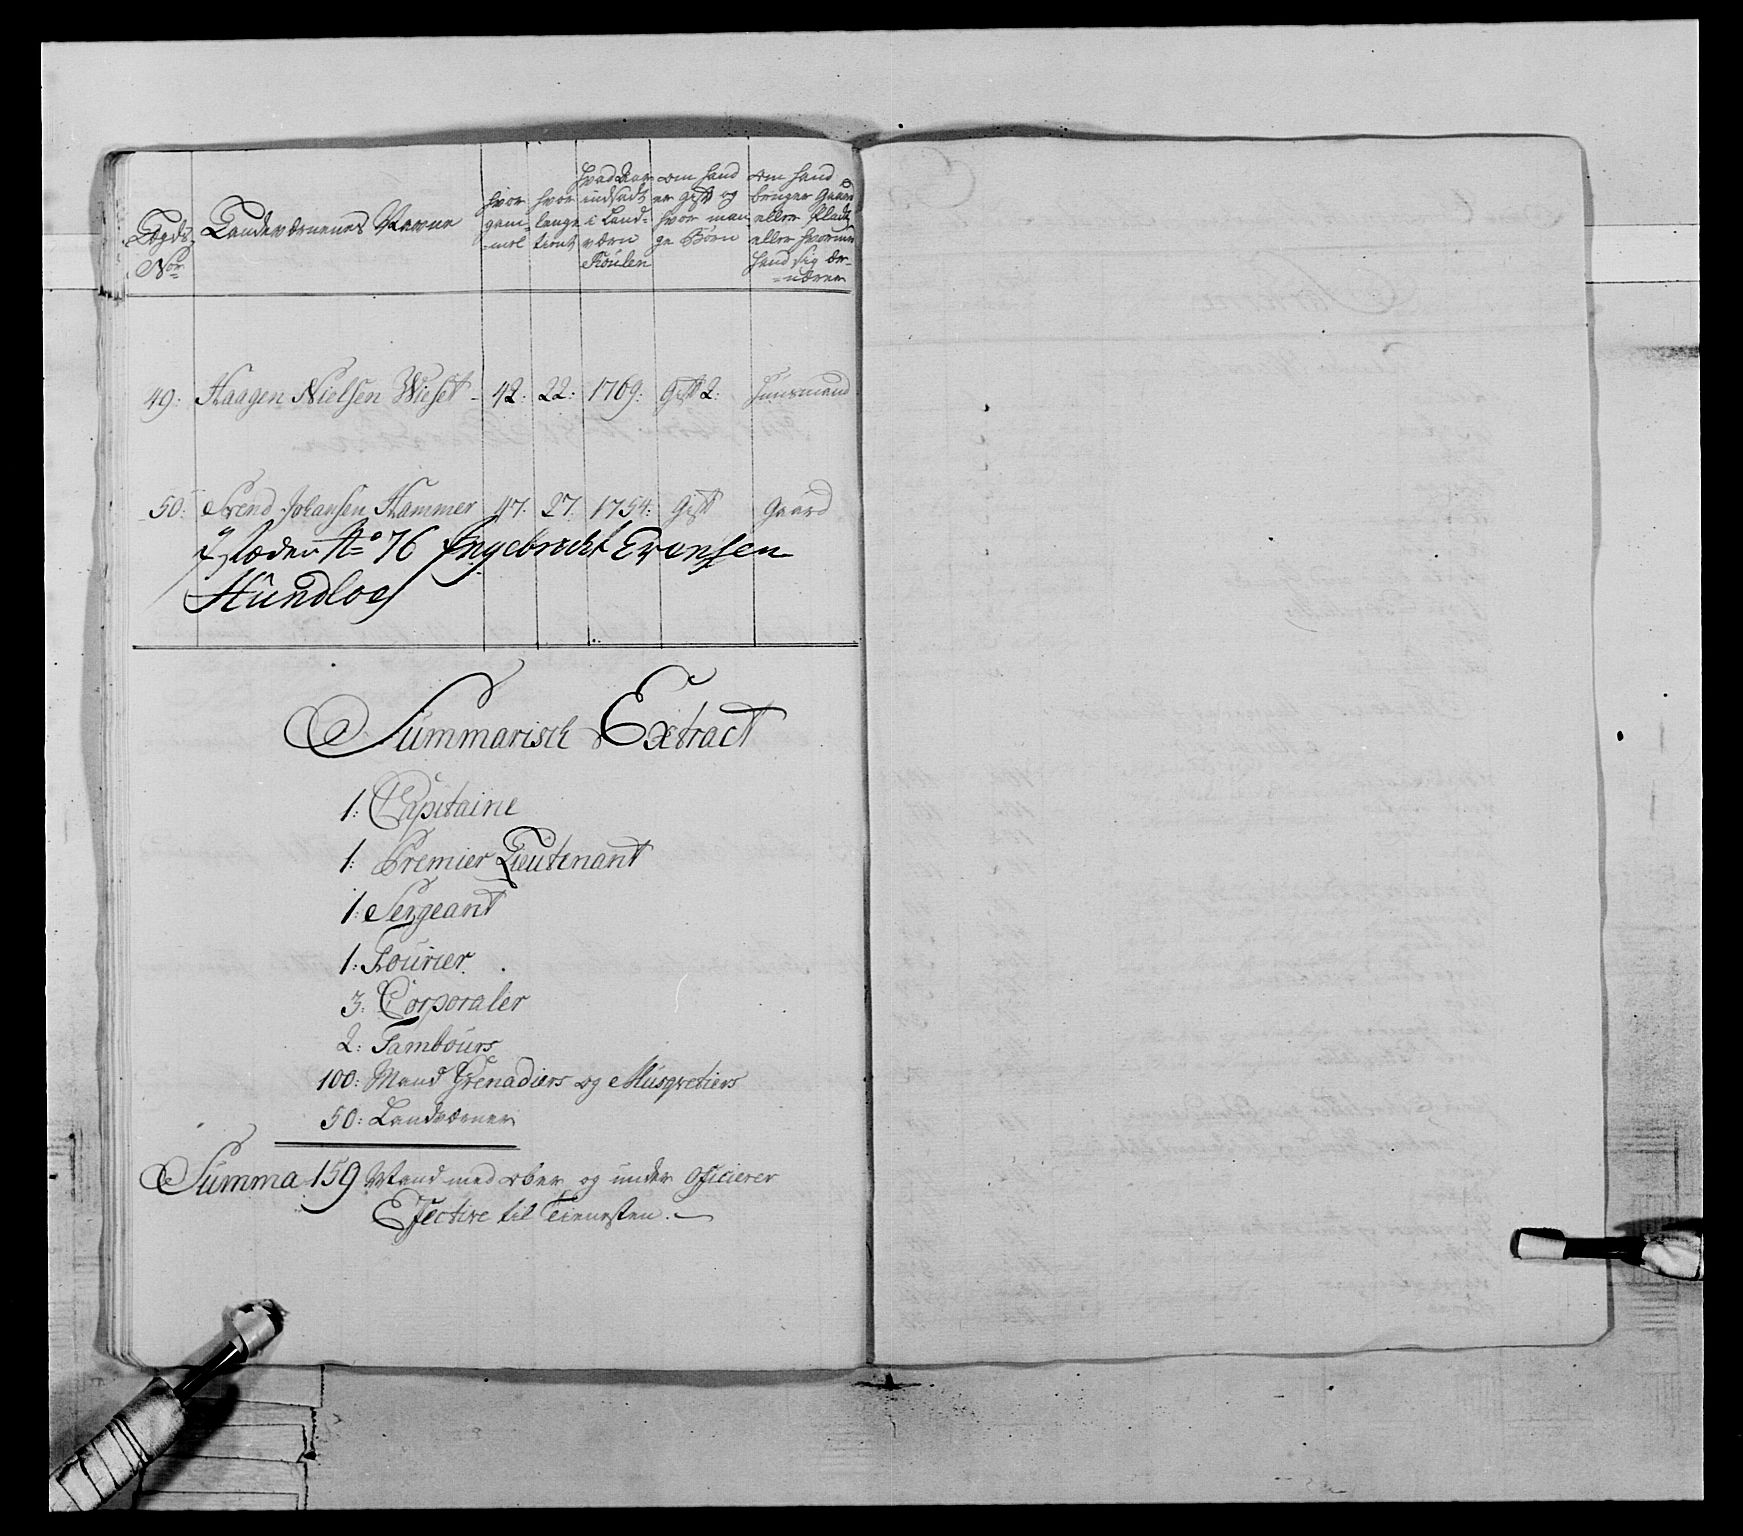 Lægds Nor
Landeværnenes Navne
hvor gam= mel
hvor lenge tient
hvad Aar indsadt i Land= værn Roulen
om hand er gift og hvor man ge Børn
om hand bruger Gaard eller Pladz eller hvormed hand sig er= nærer
49: Haagen Nielsen Wieset - 42: 22: 1769: Gift 2: Huusmand
50: Svend Johansen Hammer 47. 27. 1754: Gift Gaard
I stæden No 76 Ingebrecht Evensen
Hundloes
Summarisch Extract
1: Capitaine
1: Premier Lieutenant
1: Sergeant
1: Fourier.
3: Corporaler
2: Tambours
100: Mand Grenadiers og Musqvetiers
50: Landværner
Summa 159 Mand med ober og under Officierer
Effective til Tienesten.